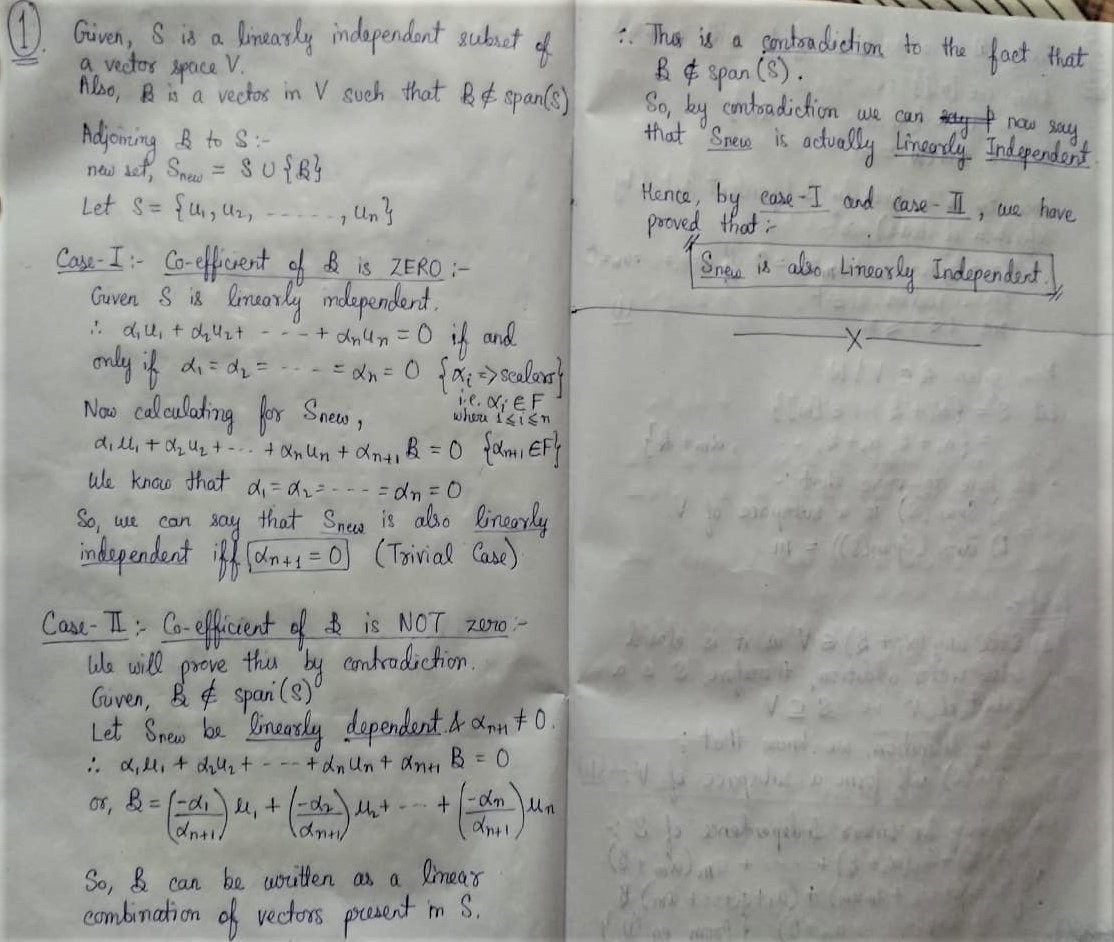 1.
Given, S is a linearly independent subset of
a vector space V.
Also, B is a vector in V such that B ∉ span(S)
Adjoining B to S:-
new set, Snew = S ∪ {B}
Let S = {u₁, u₂, ------, uₙ}
Case-I:- Co-efficient of B is ZERO :-
Given S is linearly independent.
∴ α₁u₁ + α₂u₂ + ---- + αₙuₙ = 0 if and
only if α₁ = α₂ = ---- = αₙ = 0 {αᵢ => scalars}
i.e. αᵢ ∈ F
where 1≤i≤n
Now calculating for Snew,
α₁u₁ + α₂u₂ + --- + αₙuₙ + αₙ₊₁ B = 0 {αₙ₊₁ ∈ F}
We know that α₁ = α₂ = ---- = αₙ = 0
So, we can say that Snew is also linearly
independent iff αₙ₊₁ = 0 (Trivial Case)
Case-II :- Co-efficient of B is NOT zero :-
We will prove this by contradiction.
Given, B ∉ span(S)
Let Snew be linearly dependent & αₙ₊₁ ≠ 0.
∴ α₁u₁ + α₂u₂ + ---- + αₙuₙ + αₙ₊₁ B = 0
or, B = (-α₁/αₙ₊₁) u₁ + (-α₂/αₙ₊₁) u₂ + --- + (-αₙ/αₙ₊₁) uₙ
So, B can be written as a linear
combination of vectors present in S.
∴ This is a contradiction to the fact that
B ∉ span(S).
So, by contradiction we can now say
that Snew is actually Linearly Independent
Hence, by case-I and case-II, we have
proved that :-
Snew is also Linearly Independent.
X